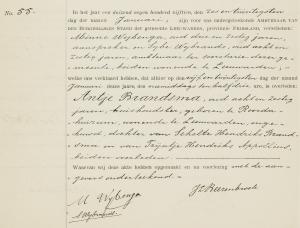 No. 55.
In het jaar een duizend negen honderd vijftien, den zes en twintigsten
dag der maand Januari, zijn voor ons ondergeteekende AMBTENAAR VAN
DEN BURGERLIJKEN STAND der gemeente LEEUWARDEN, provincie FRIESLAND, verschenen:
Meinte Wijbenga, oud drie en zestig jaren,
aanspreker en Sybe Wijbrandi, oud acht en
zestig jaren, ambtenaar ter secretarie dezer ge-
meente, beiden wonende te Leeuwarden,
welke ons verklaard hebben, dat op den vijf en twintigsten dag der maand
Januari dezes jaars, des namiddags ten half drie ure, is overleden:
Antje Brandsma, oud acht en zestig
jaren, zonder beroep, geboren te
huizum, wonende te Leeuwarden, onge-
huwd, dochter van Schelte Hendriks Brand-
sma en van Trijntje Hendriks Appollus,
beiden overleden.
Waarvan wij deze akte hebben opgemaakt en na voorlezing met de aan-
gevers onderteekend.
M Wybenga
S Wijbrandi